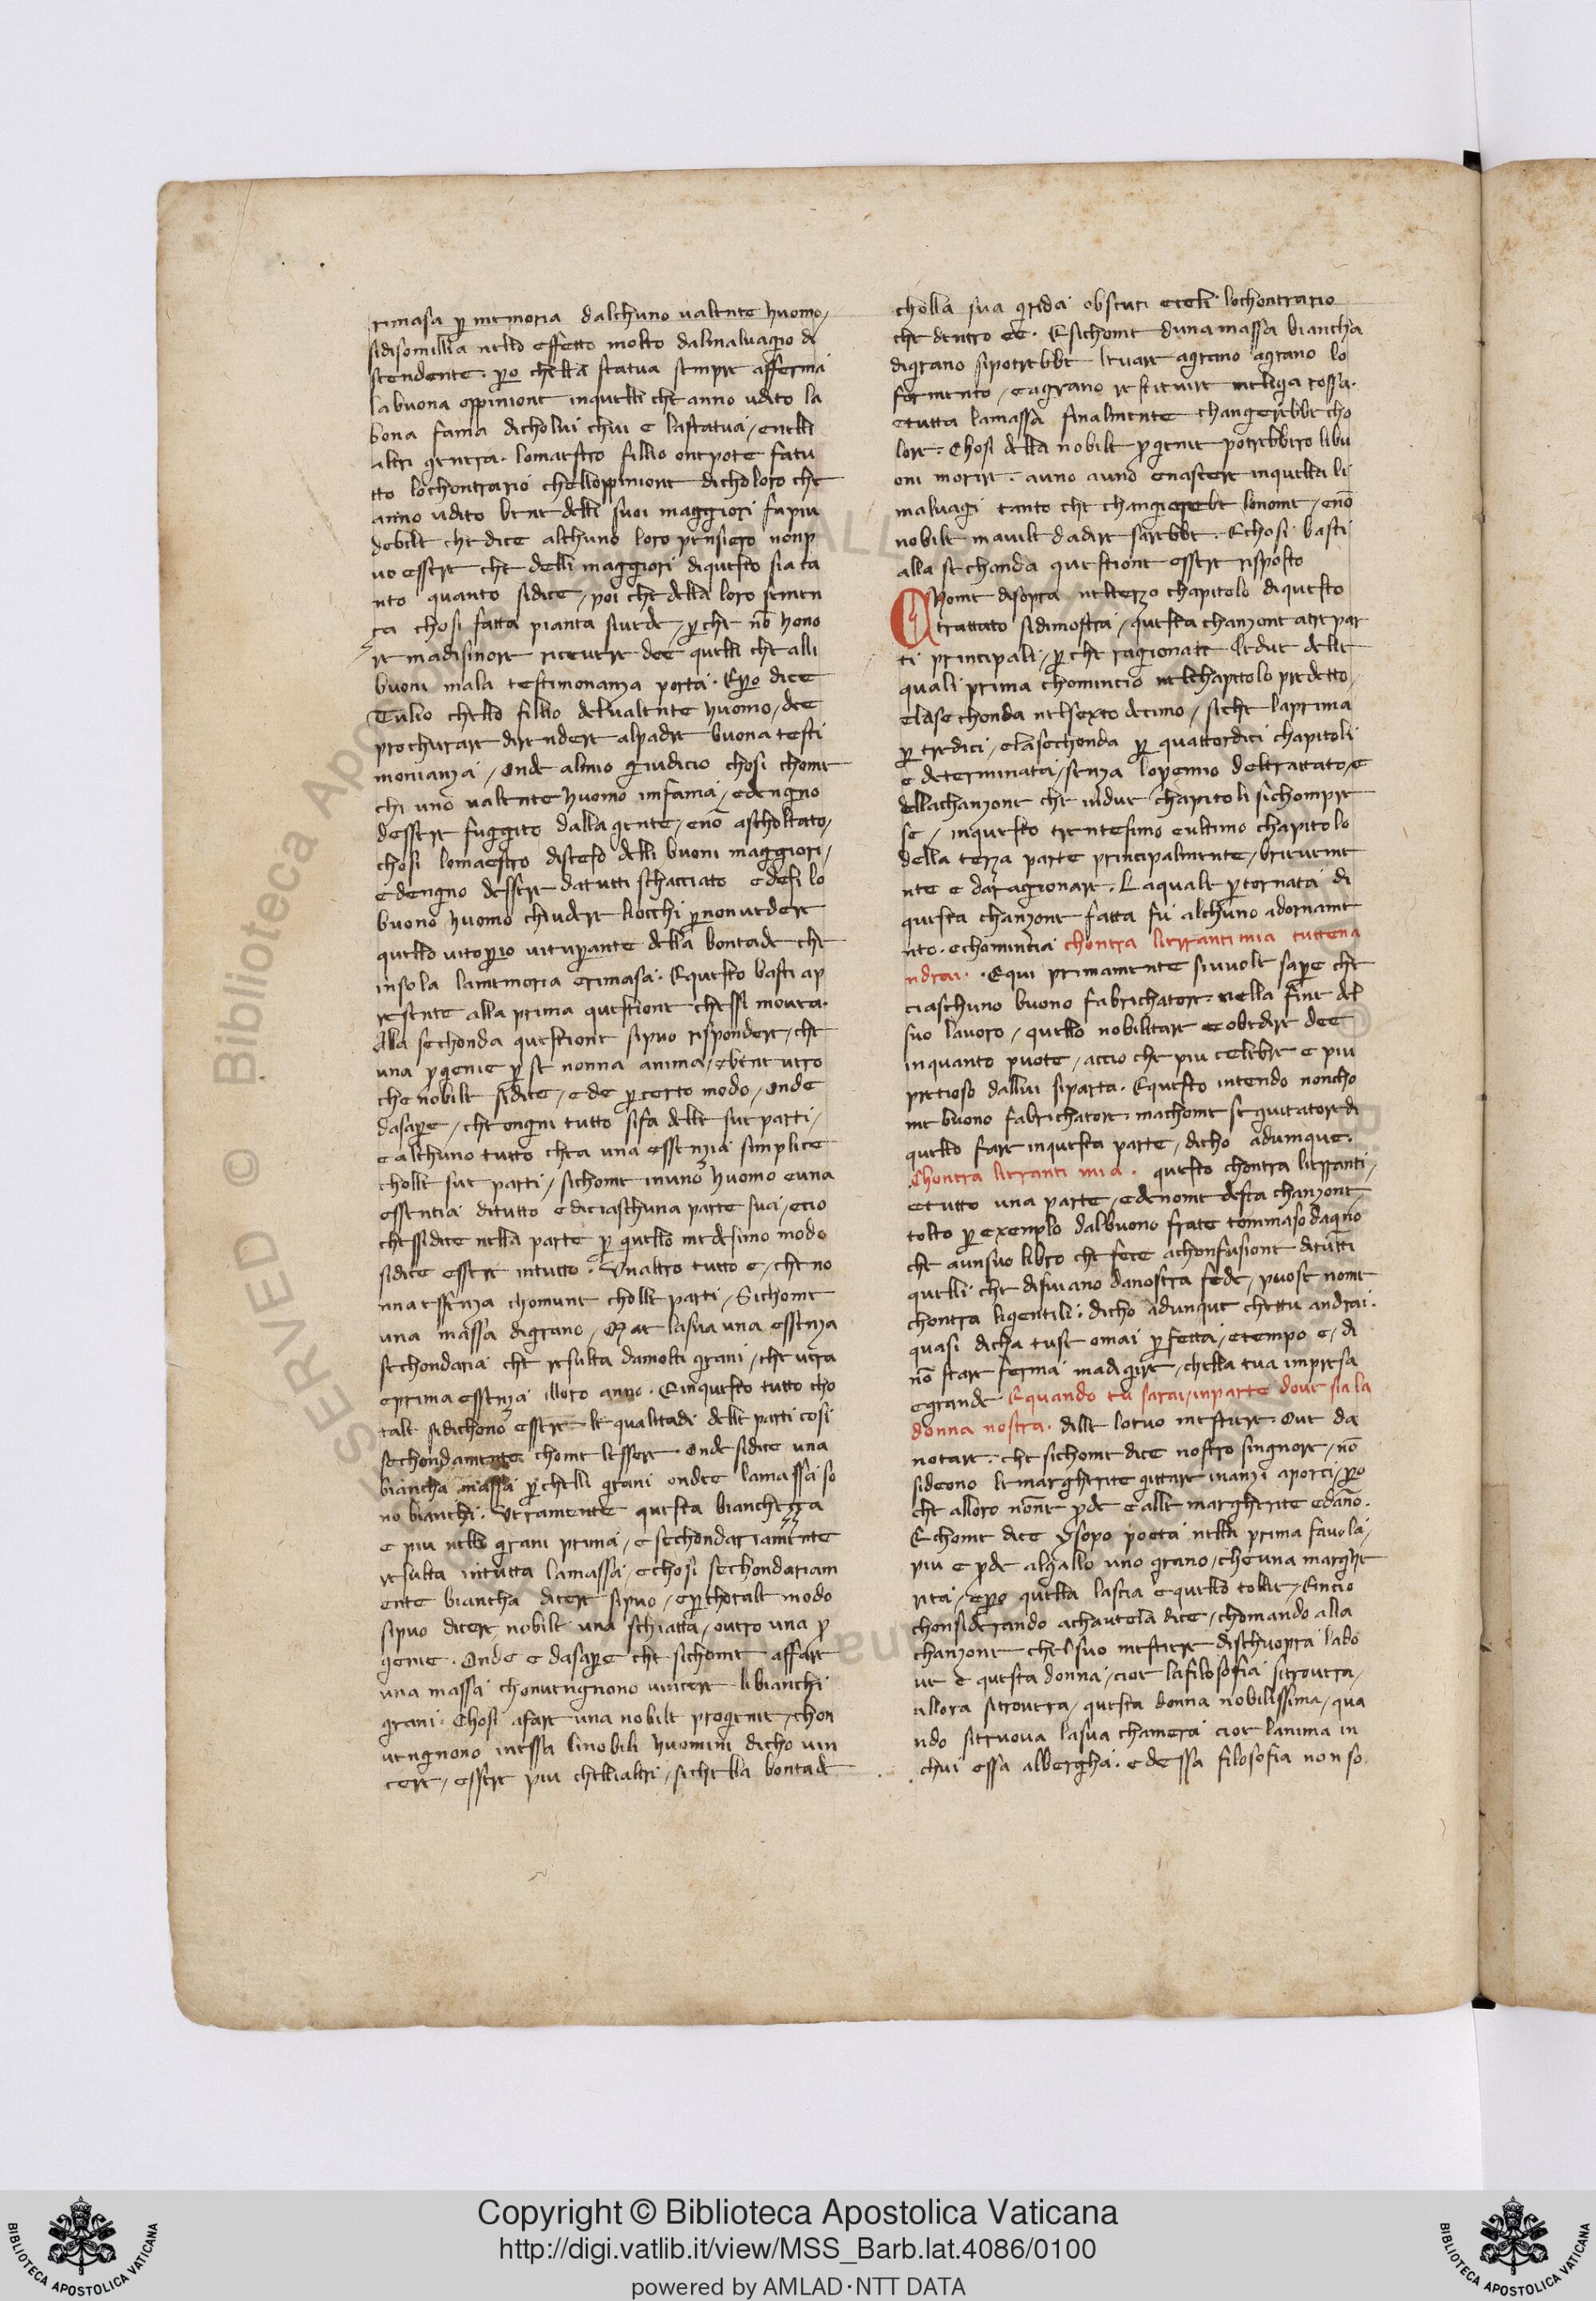 rimasa p memoria dalchuno valente huomo /
sidisomillia nello effetto molto dalmalvagio di
scendente. po chella statua sempre afferma
labuona oppinione inquelli che anno udito la
bona fama dicholui chui e lastatua / enelli
altri genera. lomaestro fillio onepote fatu
tto lochontrario chelloppinione dicholoro che
anno udito bene delli suoi maggiori fapiu
debile che dice alchuno loro pensiero nonp
uo essere che delli maggiori diquesto sia ta
nto quanto sidice / poi che della loro semen
ta chosi fatta pianta sivede / p che no hono
re madisinore ricevere dee quelli che alli
buoni mala testimonanza porta. Epo dice
Tulio chello fillio delvalente huomo / dee
prochurare direndere alpadre buona testi
monianza / onde almio giudicio chosi chome
chi uno valente huomo infama / edengno
dessere fuggito dalla gente / eno ascholtato /
chosi lomaestro disceso delli buoni maggiori /
edengno dessere datutti schacciatto e desi lo
buono huomo chiudere liocchi pnonvedere
quello vitopio vitupante della bontade che
insola lamemoria erimasa. Equesto basti ap
resente alla prima questione chessi movea.
Alla sechonda questione sipuo rispondere / che
una pgenie p se nonna anima / ebene vero
che nobile sidice / ede pcerto modo / onde
dasape / che ongni tutto sifa delle sue parti /
e alchuno tutto chea una essenzia simplice
cholle sue parti / sichome inuno huomo euna
essentia ditutto e diciaschuna parte sua / ecio
chessidice nella parte p quello medesimo modo
sidice essere intutto. Unaltro tutto e / che no
nna essenza chomune cholle parti / Sichome
una massa digrano / Mae lasua una essenza
sechondaria che resulta damolti grani / che vera
eprima essenza illoro anno. Einquesto tutto cho
tale sidichono essere le qualitadi delle parti cosi
sechondamente chome lessere. onde sidice una
biancha massa pchelli grani ondee lamassa so
no bianchi. Veramente questa bianchezza
e piu nelli grani prima / e sechondariamente
resulta intutta lamassa / echosi sechondariam
ente biancha dicere sipuo / epchotale modo
sipuo dicere nobile una schiatta / overo una p
genie. Onde e dasape che sichome affare
una massa chonvengnono vincere libianchi
grani. Chosi afare una nobile progenie / chon
vengnono inessa linobili huomini dicho vin
cere / essere piu chellialtri / sichella bontade
cholla sua grida obscuri eceli lochontrario
che dentro ee. Esichome duna massa biancha
digrano sipotrebbe levare agrano agrano lo
formento / e agrano restituire meliga rossa.
etutta lamassa finalmente changerebbe cho
lore. Chosi della nobile pgenie potrebbero libu
oni morire. auno auno enascere inquella li
malvagi tanto che changerebe lonome / eno
nobile mavile dadire sarebbe. Echosi basti
alla sechonda questione essere risposto
Chome disopra nelterzo chapitolo diquesto
trattato sidimostra / questa chanzone atre par
ti principali / p che ragionate ledue delle
quali prima chomincio nelchapitolo predetto /
elasechonda nelsexto decimo / siche laprima
p tredici / elasechonda p quattordici chapitoli
e determinata / senza loproemio deltrattato / e
dellachanzone che indue chapitoli sichompre
se / inquesto trentesimo eultimo chapitolo
della terza parte principalmente / brieveme
nte e daragionare. Laquale ptornata di
questa chanzone fatta fu alchuno adorname
nto. echomincia chontra lierranti mia tuttena
ndrai. Equi primamente sivuole sape che
ciaschuno buono fabrichatore nella fine del
suo lavoro / quello nobilitare eobedire dee
inquanto puote / accio che piu celebre e piu
pretioso dallui siparta. Equesto intendo noncho
me buono fabrichatore machome seguitatoredi
quello fare inquesta parte / dicho adunque.
Chontra lierranti mia. questo chontra lierranti /
etutto una parte / edenome desta chanzone /
tolto p exemplo dalbuono frate tommaso daqno
che aunsuo libro che fece achonfusione ditutti
quelli che disviano danostra fede / puose nome
chontra ligentili. dicho adunque chettu andrai.
quasi dicha tuse omai pfetta / etempo e / di
no stare ferma mad gire / chella tua impresa
egrande. Equando tu sarai / inparte dove sia la
donna nostra. dille lotuo mestiere. Ove da
notare. che sichome dice nostro singnore / no
sideono lemargherite gittare inanzi aporci / po
che alloro none pde e alle margherite edano.
Echome dice ysopo poeta nella prima favola /
piu e pde algallo uno grano / che una marghe
rita / epo quella lascia equello tollie / Eincio
chonsiderando achautela dice / chomando alla
chanzone chelsuo mestiere dischuopra labo
ve e questa donna / cioe lafilosofia sitrovera /
allora sitrovera / questa donna nobilissima / qua
ndo sitruova lasua chamera cioe lanima in
chui essa albergha. e dessa filosofia non so
Copyright © Biblioteca Apostolica Vaticana
http://digi.vatlib.it/view/MSS_Barb.lat.4086/0100
powered by AMLAD·NTT DATA
BIBLIOTECA APOSTOLICA VATICANA
BIBLIOTECA APOSTOLICA VATICANA